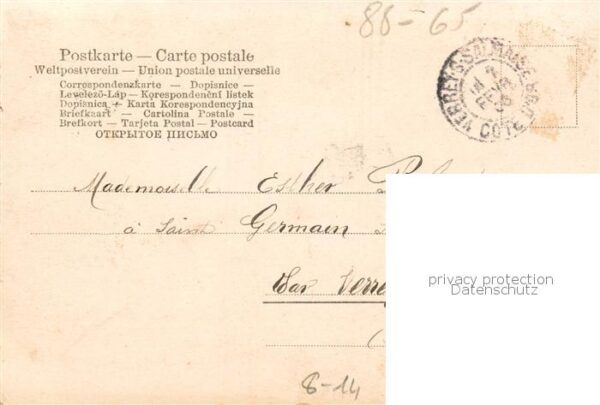 86-65
Postkarte — Carte postale
Weltpostverein — Union postale universelle
Correspondenzkarte — Dopisnice —
Levelező-Láp — Korespondenční listek
Dopisnica — Karta Korespondencyjna
Briefkaart — Cartolina Postale —
Brefkort — Tarjeta Postal — Postcard
ОТКРЫТОЕ ПИСЬМО
Mademoiselle Esther
à Sainte Germain
Par Verre
privacy protection
Datenschutz
8-14